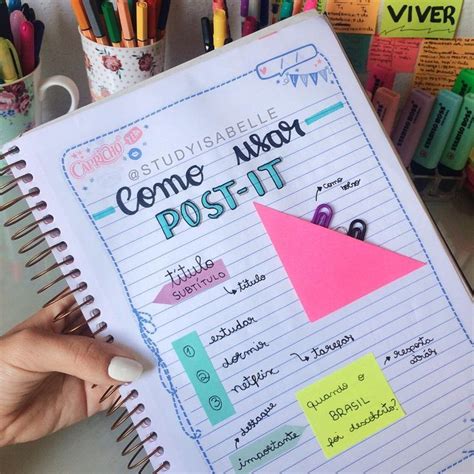 VIVER
CAPRICHO
@STUDYISABELLE
COMO usar
POST-IT
como bolso
título
SUBTÍTULO
título
1 estudar
2 dormir
3 netflix
tarefas
resposta
atrás
quando o
BRASIL
foi descoberto?
destaque
importante